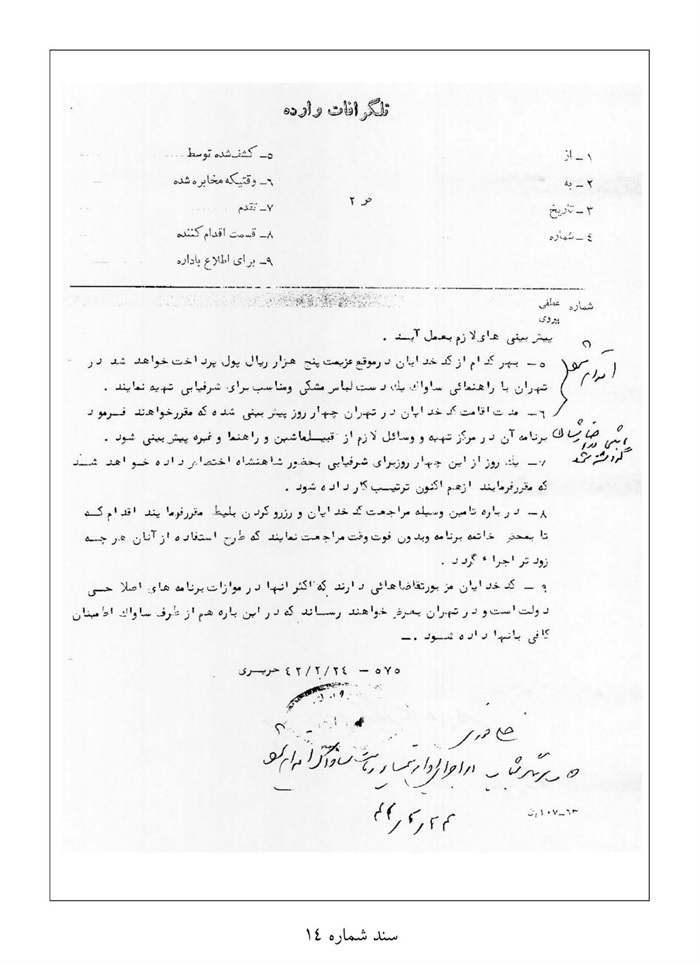 تلگرافات وارده
۱ـ از
۲ـ به
۳ـ تاریخ
۴ـ شماره
ص ۲
۵ـ کشف شده توسط
۶ـ وقتیکه مخابره شده
۷ـ تقدم
۸ـ قسمت اقدام کننده
۹ـ برای اطلاع باداره
شماره عطفی
پیروی
پیش بینی های لازم بعمل آید .
۵ـ بهر کدام از کدخدایان در موقع عزیمت پنج هزار ریال پول پرداخت خواهد شد در
تهران با راهنمائی ساواک یک دست لباس مشکی ومناسب برای شرفیابی تهیه نمایند .
۶ـ مدت اقامت کدخدایان در تهران چهار روز پیش بینی شده که مقرر خواهند فرمود
برنامه آن در مرکز تهیه و وسائل لازم از قبیل ماشین و راهنما و غیره پیش بینی شود .
۷ـ یک روز از این چهار روز برای شرفیابی بحضور شاهنشاه اختصاص داده خواهد شد
که مقرر فرمایند از هم اکنون ترتیب کار داده شود .
۸ـ درباره تامین وسیله مراجعت کدخدایان و رزرو کردن بلیط مقرر فرمایند اقدام که
تا بمحض خاتمه برنامه وبدون فوت وقت مراجعت نمایند که طرح استفاده از آنان هر چه
زودتر اجراء گردد .
۹ـ کدخدایان مزبور تقاضاهائی دارند که اکثر آنها در موازات برنامه های اصلاحی
دولت است و در تهران بعرض خواهند رساند که در این باره هم از طرف ساواک اطمینان
کافی بآنها داده شود .ـ
۵۷۵ ـ ۴۲/۲/۲۴ حریری
۶۳ـ۱۰۷
سند شماره ۱۴